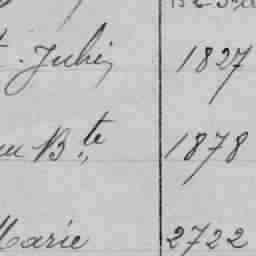 Julie 1827
au Bte 1878
Marie 2722